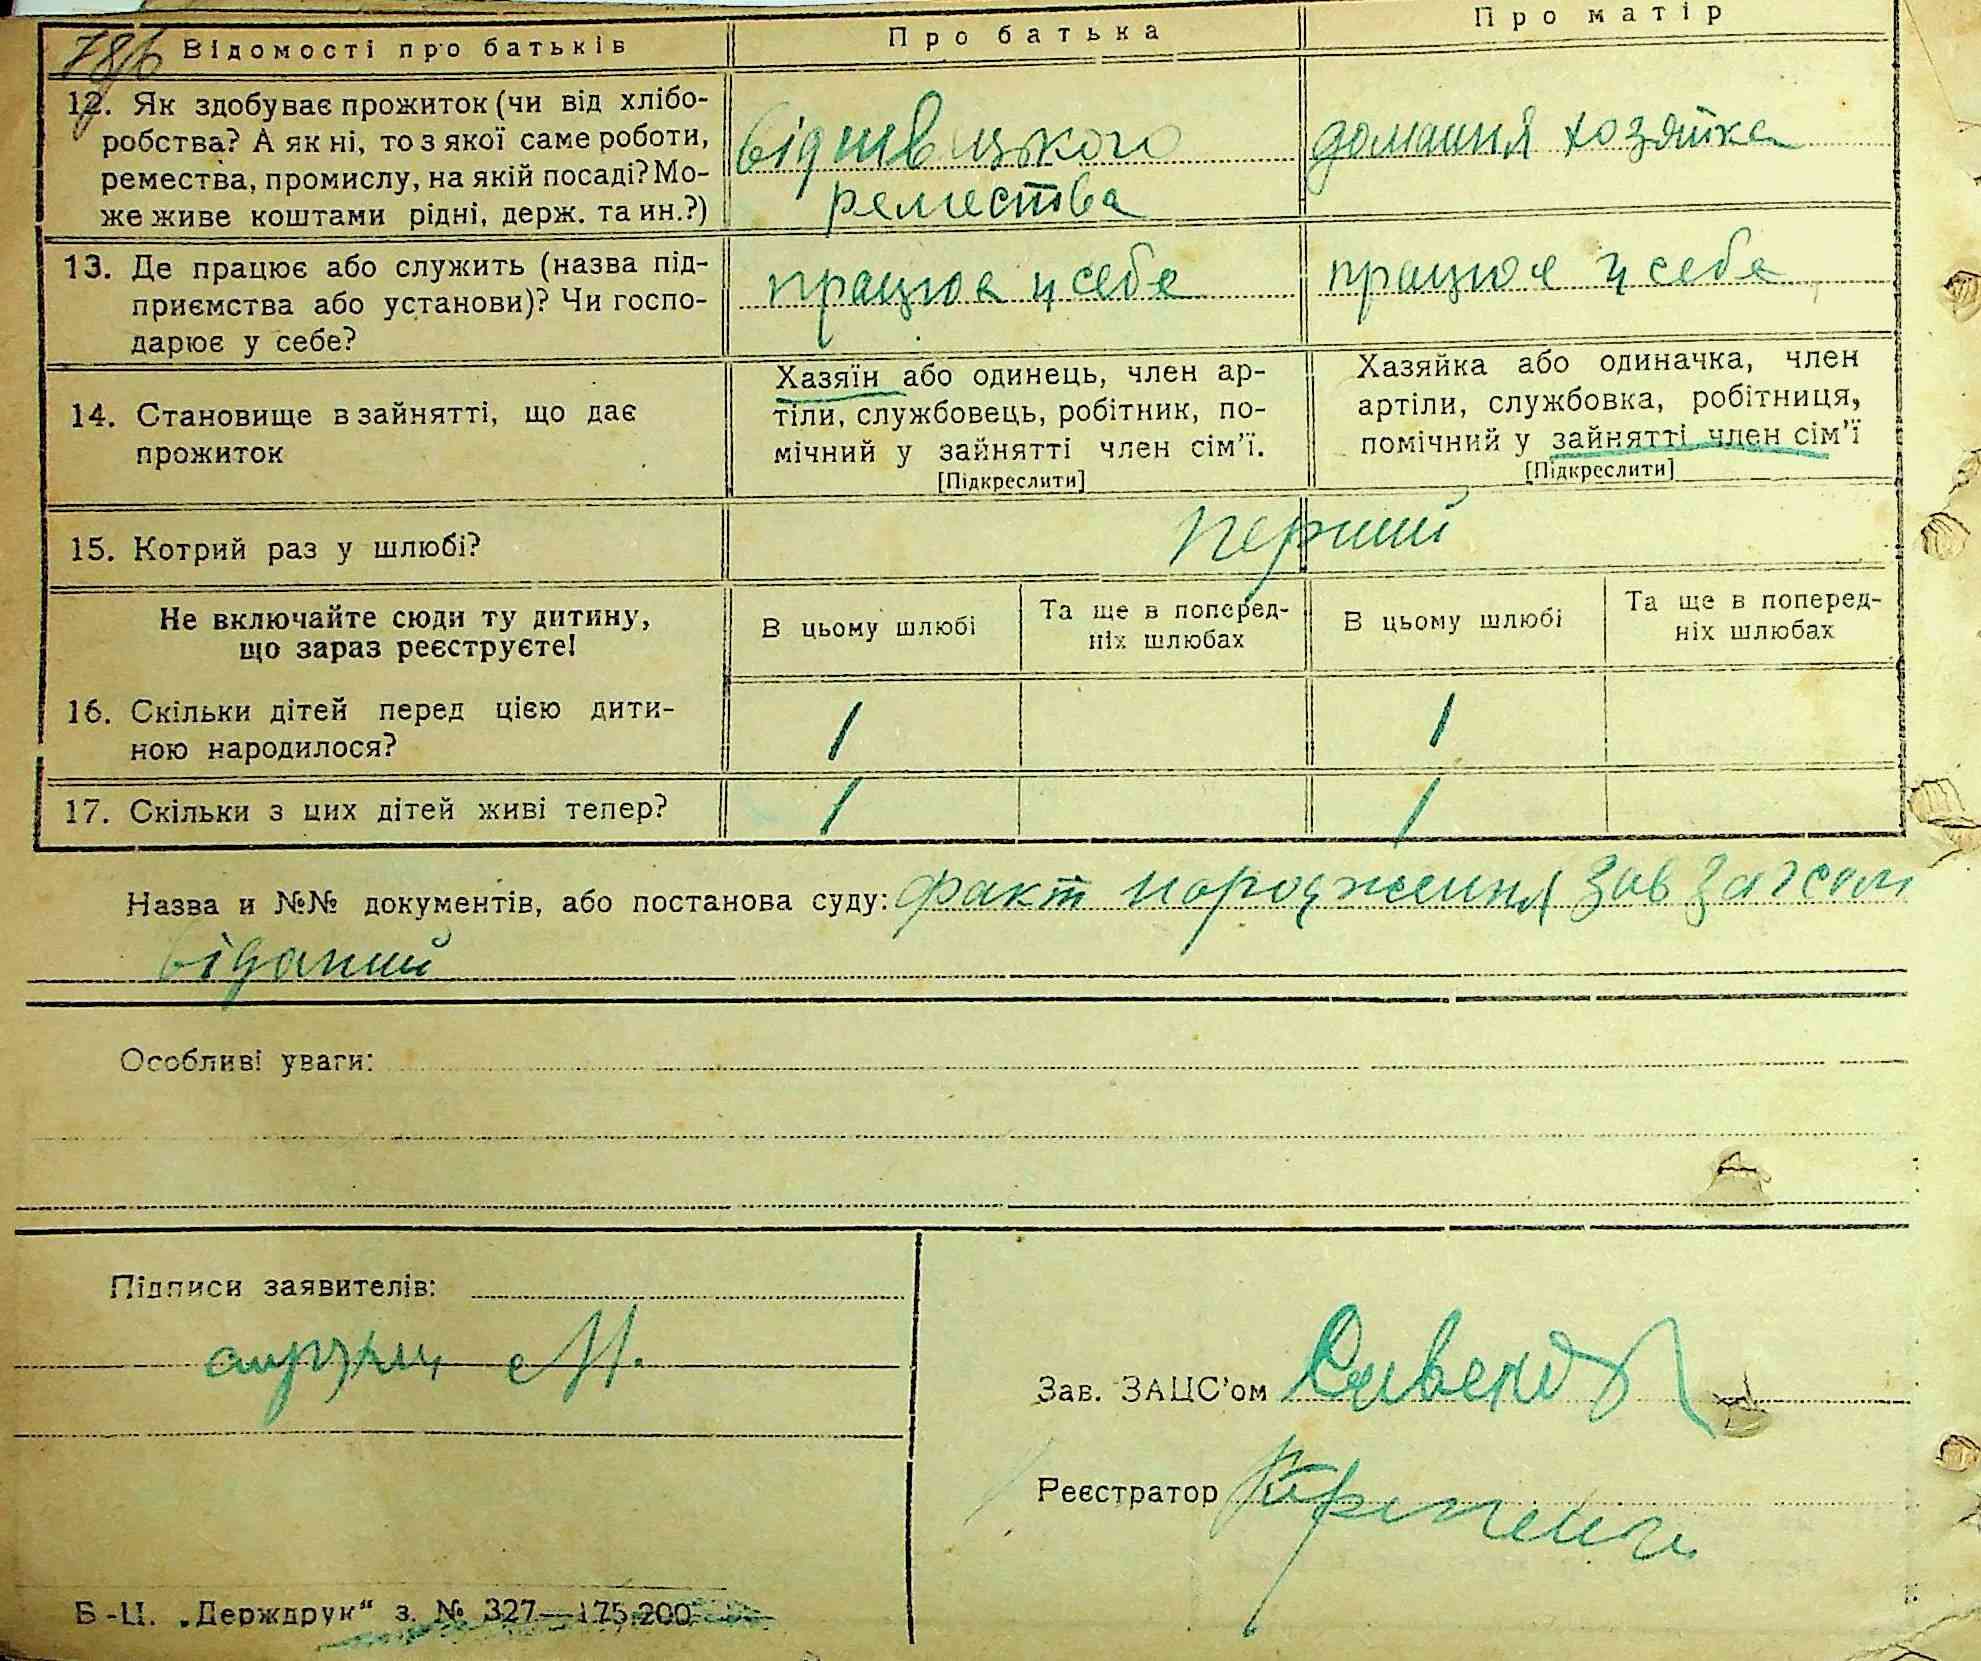 78/6 Відомості про батьків
Про батька
Про матір
12. Як здобуває прожиток (чи від хлібо-
робства? А як ні, то з якої саме роботи,
ремества, промислу, на якій посаді? Мо-
же живе коштами рідні, держ. та ин.?)
від швецького
ремества
домашня хозяйка
13. Де працює або служить (назва під-
приємства або установи)? Чи госпо-
дарює у себе?
працює у себе
працює у себе
14. Становище в зайнятті, що дає
прожиток
Хазяїн або одинець, член ар-
тіли, службовець, робітник, по-
мічний у зайнятті член сім'ї.
[Підкреслити]
Хазяйка або одиначка, член
артіли, службовка, робітниця,
помічний у зайнятті член сім'ї
[Підкреслити]
15. Котрий раз у шлюбі?
перший
Не включайте сюди ту дитину,
що зараз реєструєте!
В цьому шлюбі
Та ще в поперед-
ніх шлюбах
В цьому шлюбі
Та ще в поперед-
ніх шлюбах
16. Скільки дітей перед цією дити-
ною народилося?
1
1
17. Скільки з цих дітей живі тепер?
1
1
Назва и №№ документів, або постанова суду: факт народження зав загсом
віданий
Особливі уваги:
Підписи заявителів:
М.
Зав. ЗАЦС'ом
Реєстратор
Б-Ц. „Держдрук“ з. № 327—175.200